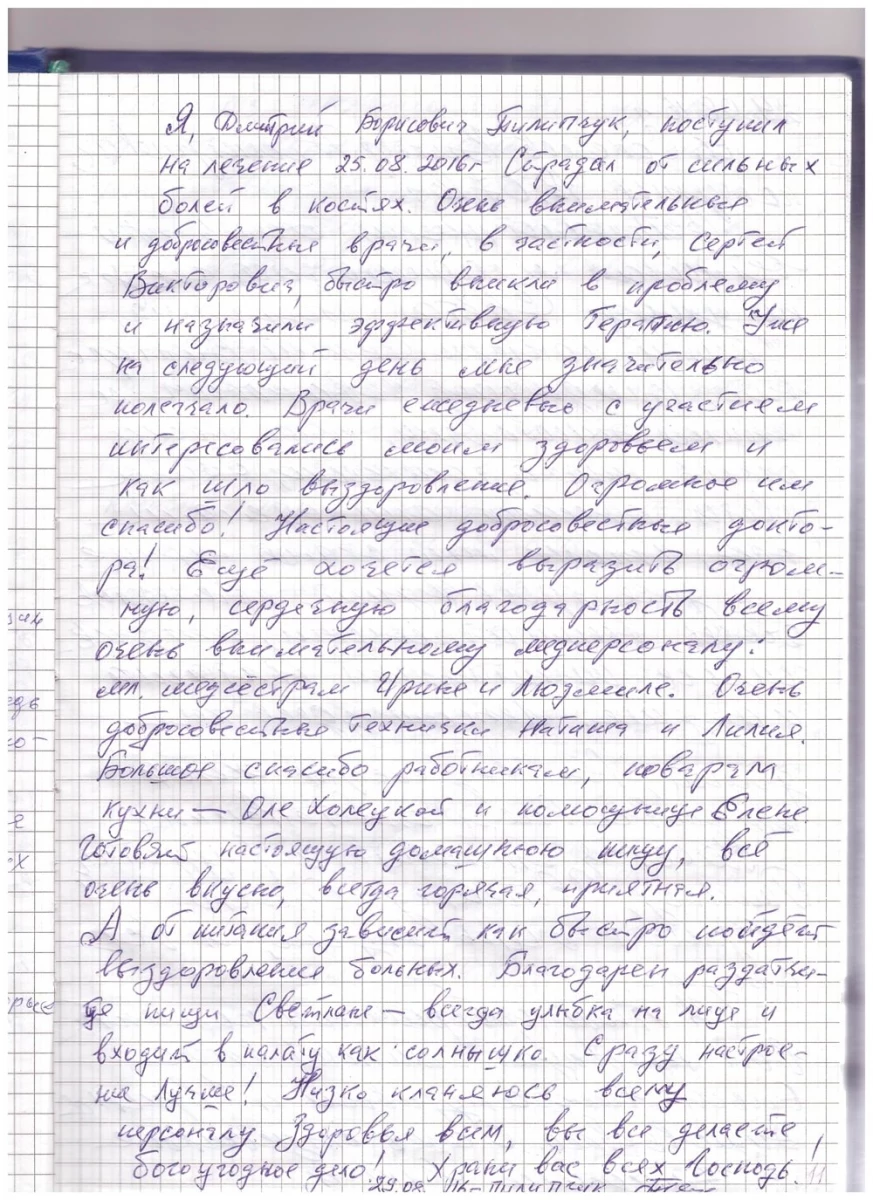 Я, Дмитрий Борисович Пилипчук, поступил
на лечение 25.08.2016г. Страдал от сильных
болей в костях. Очень внимательные
и добросовестные врачи, в частности, Сергей
Викторович, быстро вникли в проблему
и назначили эффективную терапию. Уже
на следующий день мне значительно
полегчало. Врачи ежедневно с участием
интересовались моим здоровьем и
как шло выздоровление. Огромное им
спасибо! Настоящие добросовестные докто-
ра! Ещё хочется выразить огром-
ную, сердечную благодарность всему
очень внимательному медперсоналу:
мл. медсёстрам Ирине и Людмиле. Очень
добросовестные технички Наташа и Лилия.
Большое спасибо работникам, поварам
кухни — Оле Холецкой и помощнице Елене
Готовят настоящую домашнюю пищу, всё
очень вкусно, всегда горячая, приятная.
А от питания зависит как быстро пойдёт
выздоровление больных. Благодарен раздатчи-
це пищи Светлане — всегда улыбка на лице и
входит в палату как солнышко. Сразу настрое-
ние лучше! Низко кланяюсь всему
персоналу. Здоровья всем, вы все делаете
богоугодное дело! Храни вас всех Господь!
29.08 Пилипчук